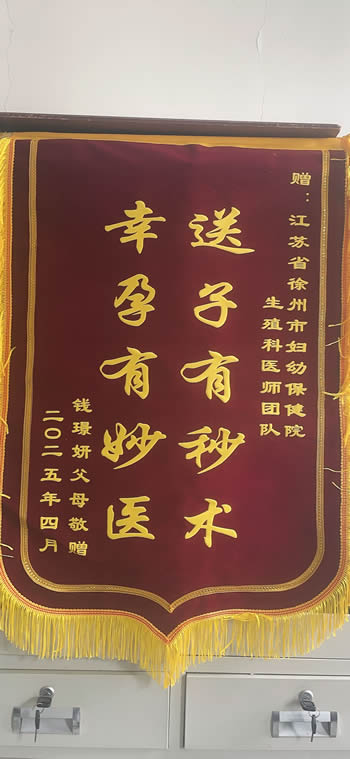 赠：江苏省徐州市妇幼保健院
生殖科医师团队
送子有秒术
幸孕有妙医
钱璟妍父母敬赠
二〇二五年四月